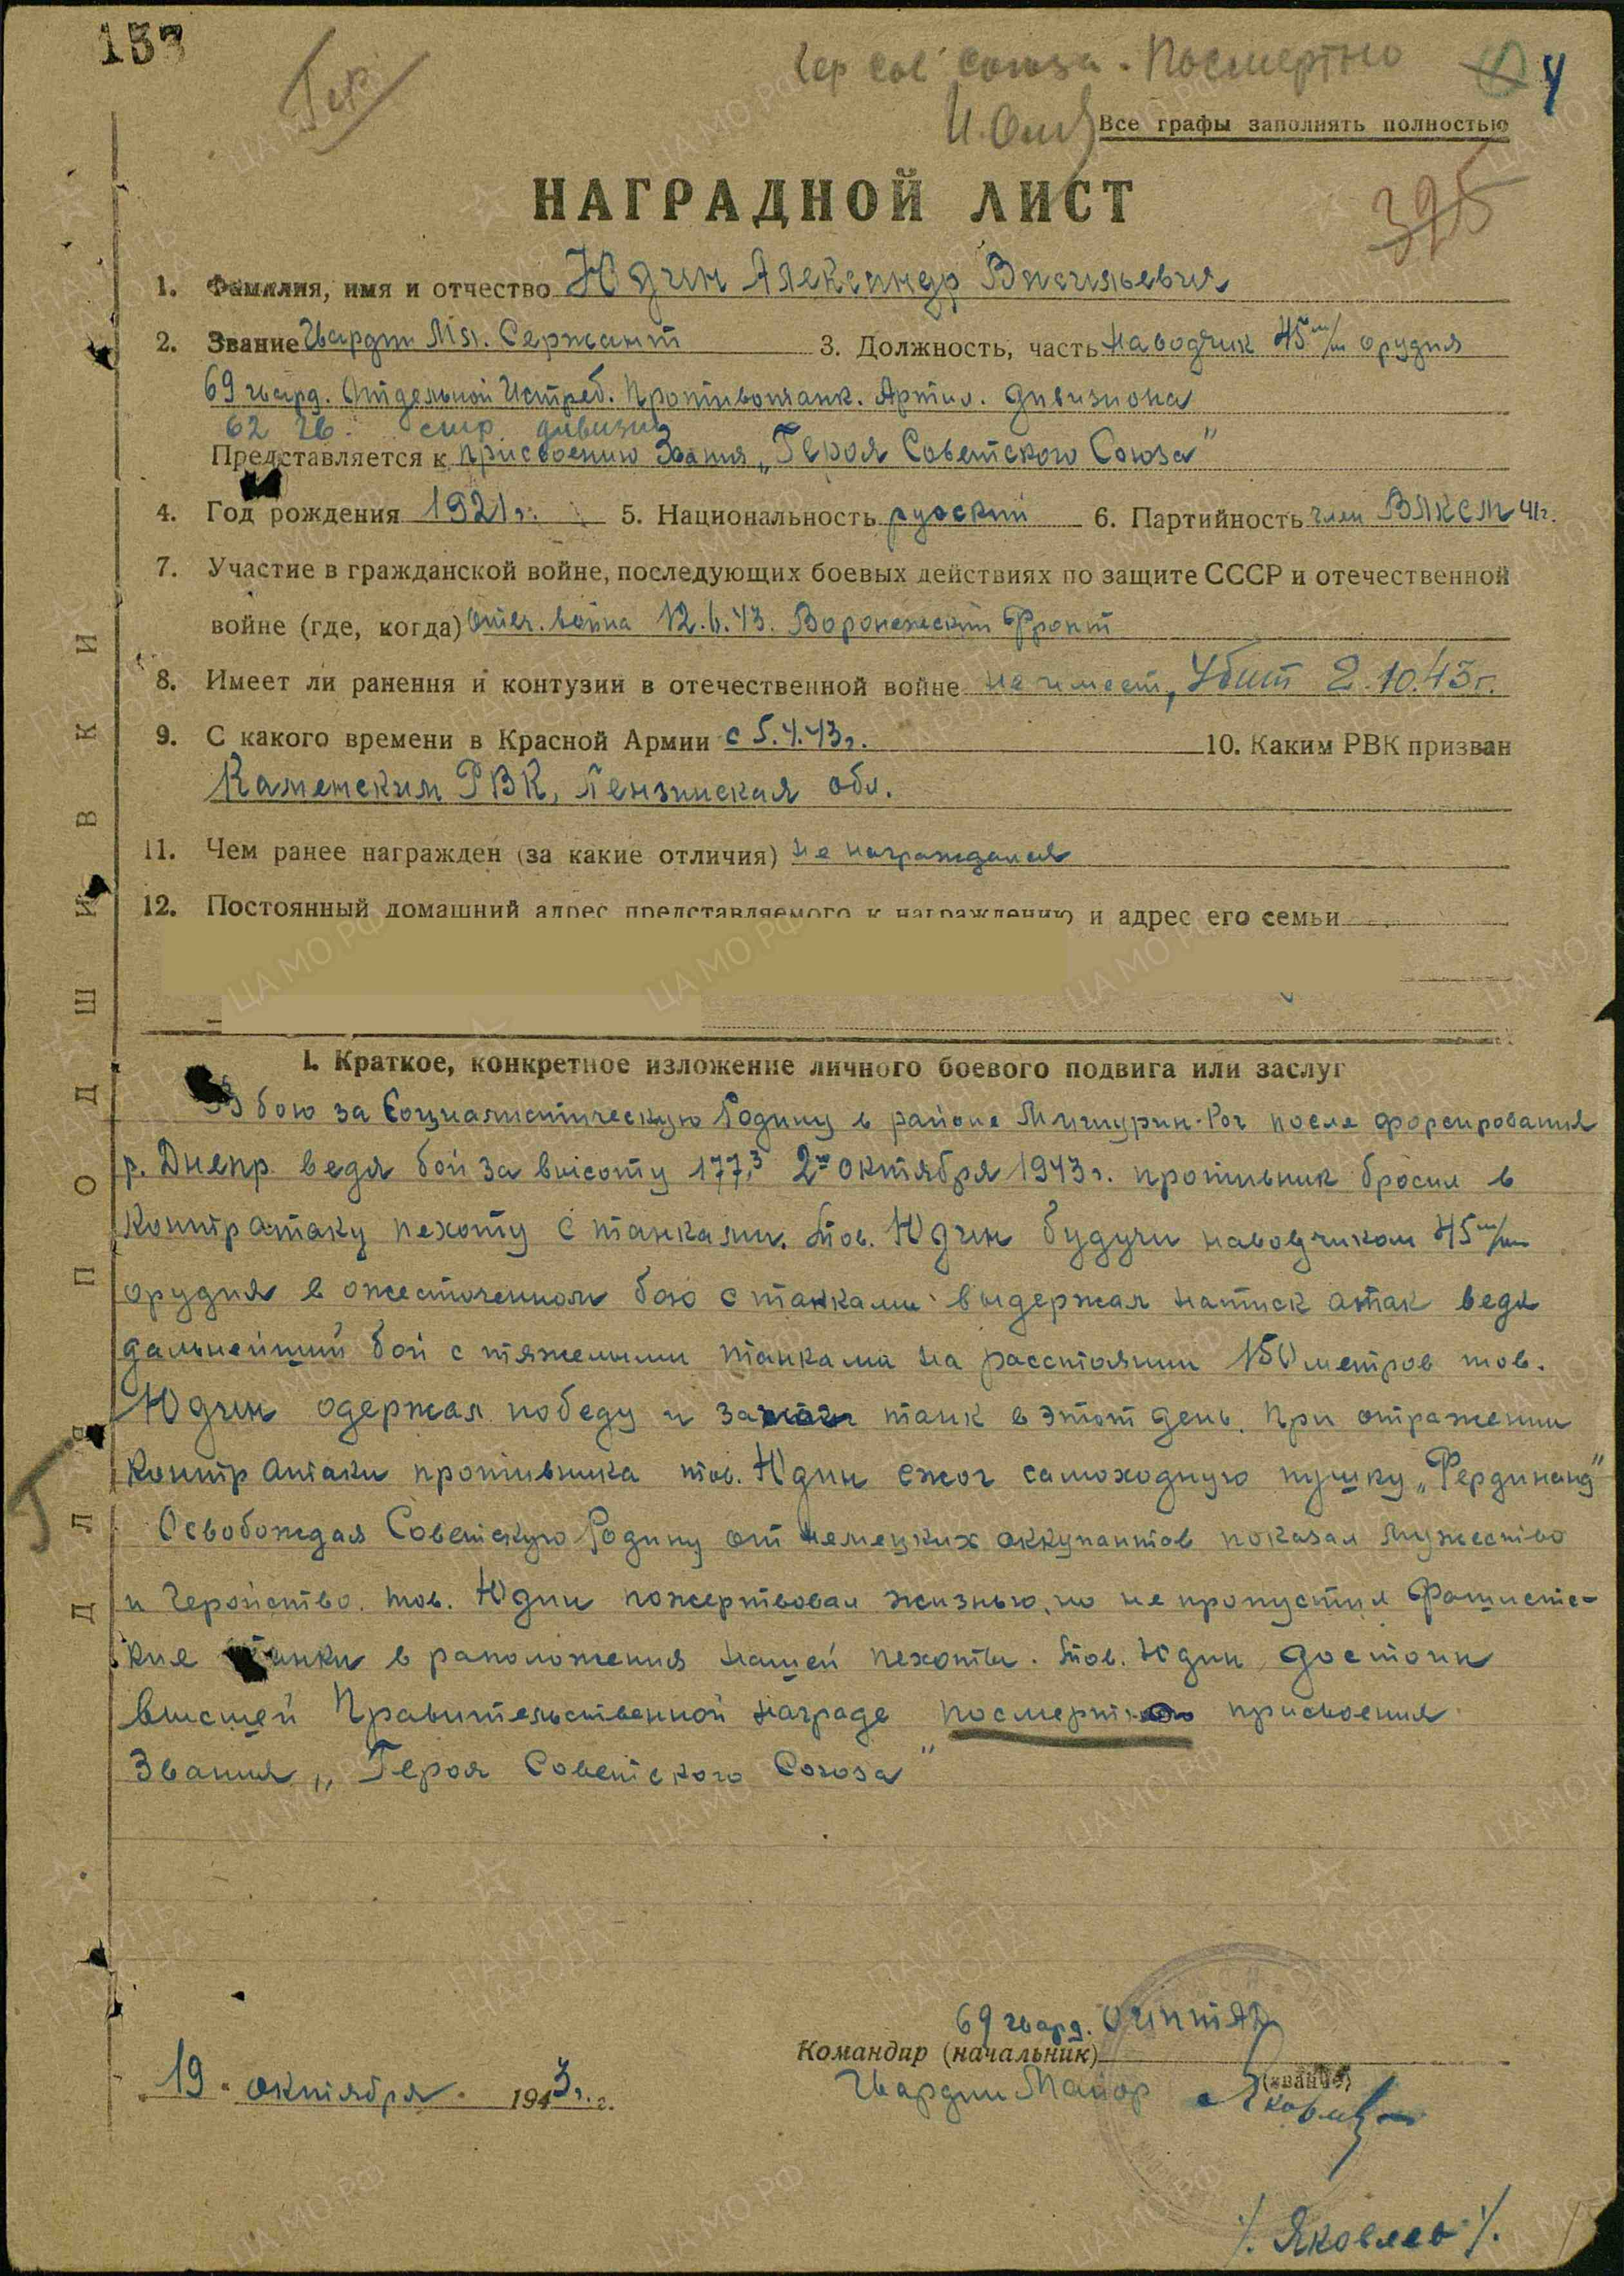 153
Гер
Гер Сов Союза. Посмертно
4
Все графы заполнять полностью
325
НАГРАДНОЙ ЛИСТ
1. Фамилия, имя и отчество Юдин Александр Васильевич
2. Звание Гвардии Мл. Сержант 3. Должность, часть Наводчик 45 м/м орудия
69 гвард. Отдельной Истреб. Противотанк. Артил. дивизиона
62 гв. стр. дивизии
Представляется к присвоению Звания „Героя Советского Союза"
4. Год рождения 1921 г. 5. Национальность русский 6. Партийность член ВЛКСМ 41г.
7. Участие в гражданской войне, последующих боевых действиях по защите СССР и отечественной
войне (где, когда) Отеч. война 12.6.43. Воронежский Фронт
8. Имеет ли ранения и контузии в отечественной войне не имеет, Убит 2.10.43г.
9. С какого времени в Красной Армии с 5.4.43г. 10. Каким РВК призван
Каменским РВК, Пензинская обл.
11. Чем ранее награжден (за какие отличия) не награждался
12. Постоянный домашний адрес представляемого к награждению и адрес его семьи
ДЛЯ ПОДШИВКИ
I. Краткое, конкретное изложение личного боевого подвига или заслуг
В бою за Социалистическую Родину в районе Мишурин-Рог после форсирования
р. Днепр ведя бой за высоту 177,3 2го октября 1943г. противник бросил в
контратаку пехоту с танками. Тов. Юдин будучи наводчиком 45 м/м
орудия в ожесточенном бою с танками выдержал натиск атак ведя
дальнейший бой с тяжелыми танкама на расстоянии 150 метров тов.
Юдин одержал победу и танк в этот день. При отражении
контр атаки противника тов. Юдин сжог самоходную пушку „Фердинанд"
Освобождая Советскую Родину от немецких оккупантов показал мужество
и геройство. тов. Юдин пожертвовал жизнью, но не пропустил Фашистс-
кие танки в раположения нашей пехоты. Тов. Юдин достоин
высшей Правительственной награде посмертно присвоения
Звания „Героя Советского Союза"
69 гвард. ОИПТАД
Командир (начальник)
(звание)
Гвардии Майор Яковлев
„19" октября 1943 г.
/. Яковлев /.
ПАМЯТЬ НАРОДА
ЦА МО РФ